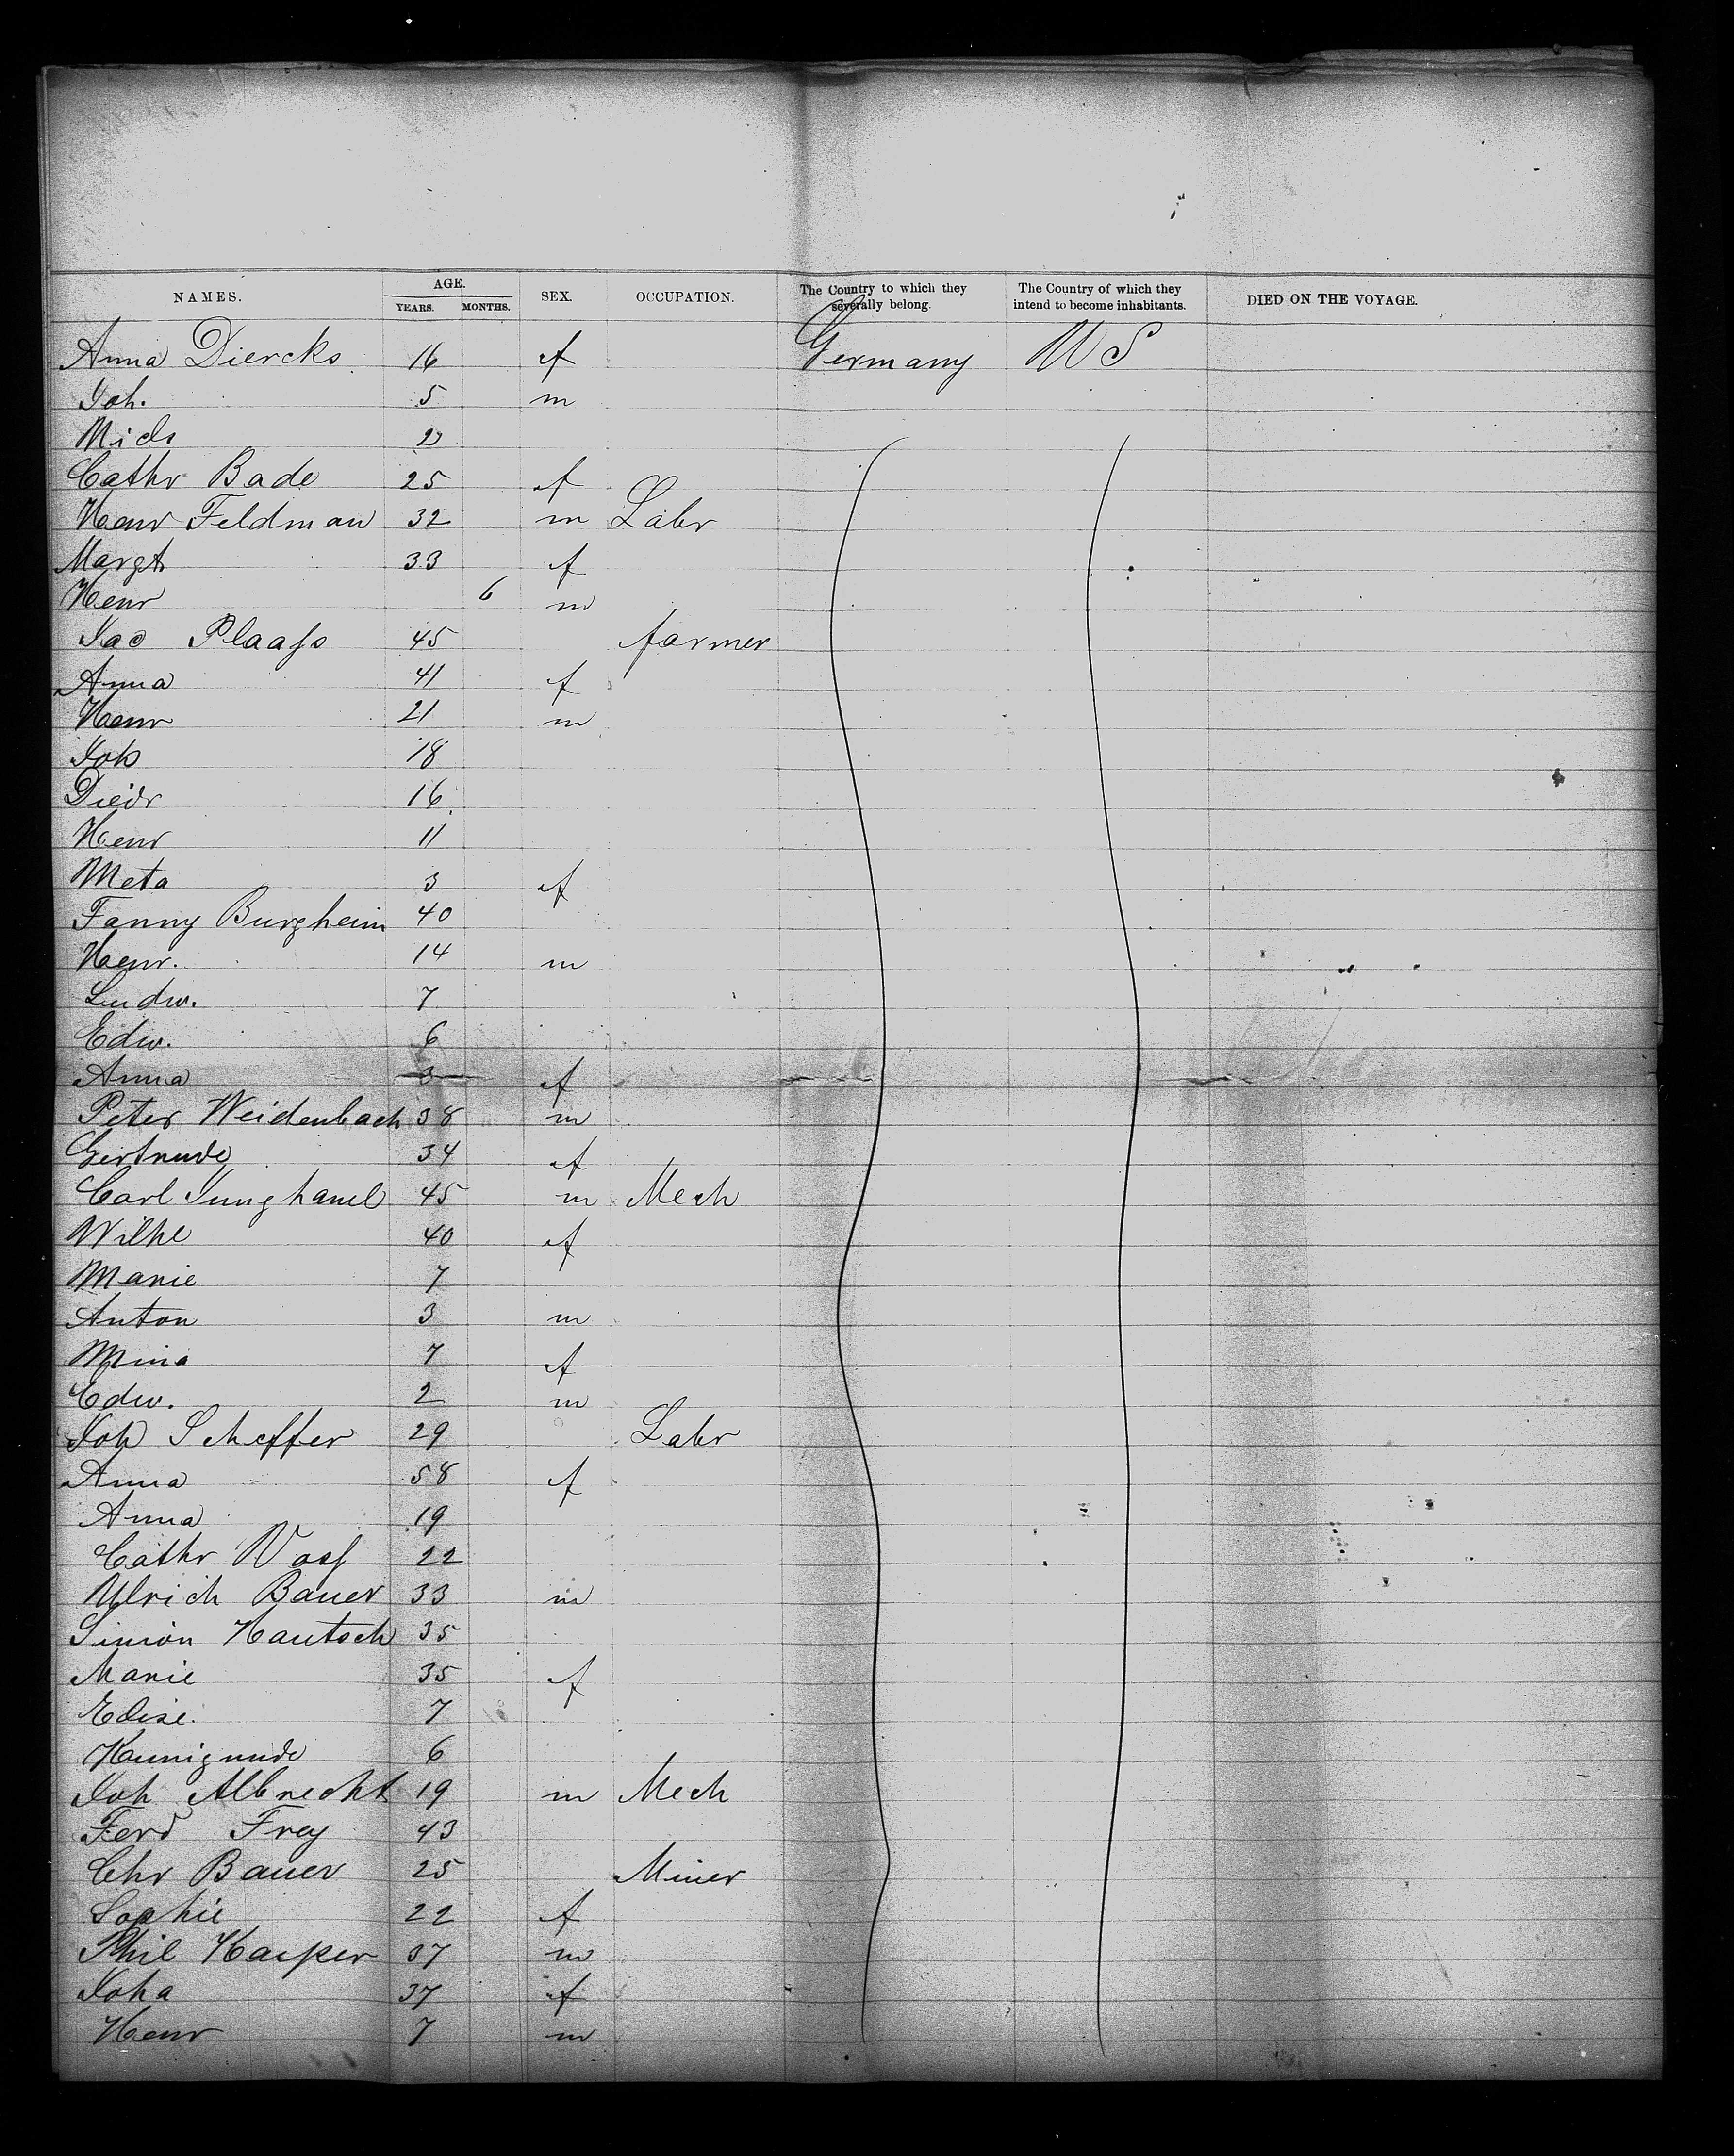 NAMES. AGE. YEARS. MONTHS. SEX. OCCUPATION. The Country to which they severally belong. The Country of which they intend to become inhabitants. DIED ON THE VOYAGE.
Anna Diercks 16 f Germany US
Joh. 5 m
Mich 2
Cathr Bade 25 f
Henr Feldman 32 m Labr
Margt 33 f
Henr 6 m
Jac Plaafs 45 farmer
Anna 41 f
Henr 21 m
Joh 18
Diedr 16
Henr 11
Meta 3 f
Fanny Burgheim 40
Henr. 14 m
Ludw. 7
Edw. 6
Anna 3 f
Peter Weidenbach 38 m
Gertrude 34 f
Carl Junghanel 45 m Mech
Wilhe 40 f
Marie 7
Anton 3 m
Mina 7 f
Edw. 2 m
Joh Scheffer 29 Labr
Anna 58 f
Anna 19
Cathr 22
Ulrich Bauer 33 m
Simon Hautsch 35
Marie 35 f
Elise. 7
Kunigunde 6
Joh Albrecht 19 m Mech
Ferd Frey 43
Chr Bauer 25 Miner
Sophie 22 f
Phil 37 m
Joha 37 f
Henr 7 m